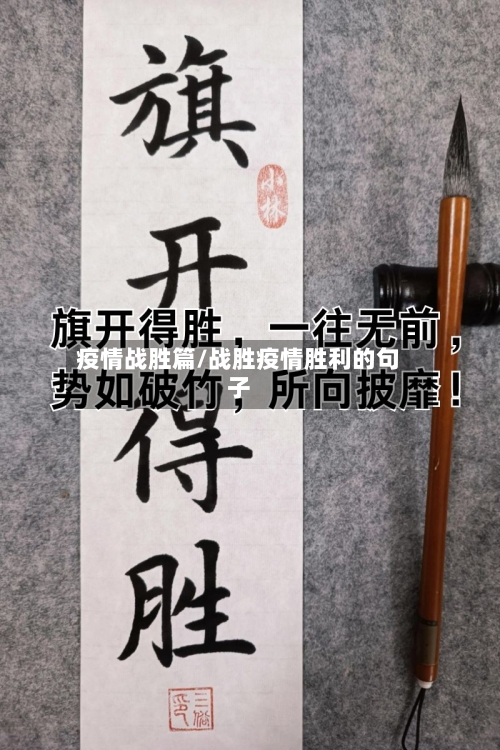 旗开得胜
小林
旗开得胜，一往无前，
疫情战胜篇/战胜疫情胜利的句
子
势如破竹，所向披靡！